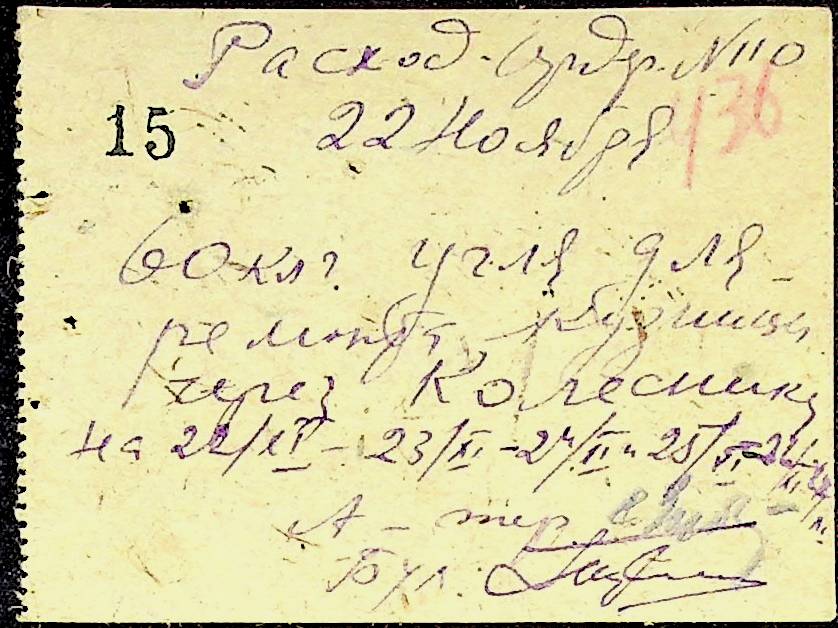 Расход. Ордр. N 110
436
15 22 Ноября
60 клг угля для
ремонта Кузницы
через Колесника
на 22/XI - 23/XI - 24/XI - 25/XI
А - тер
Бух.